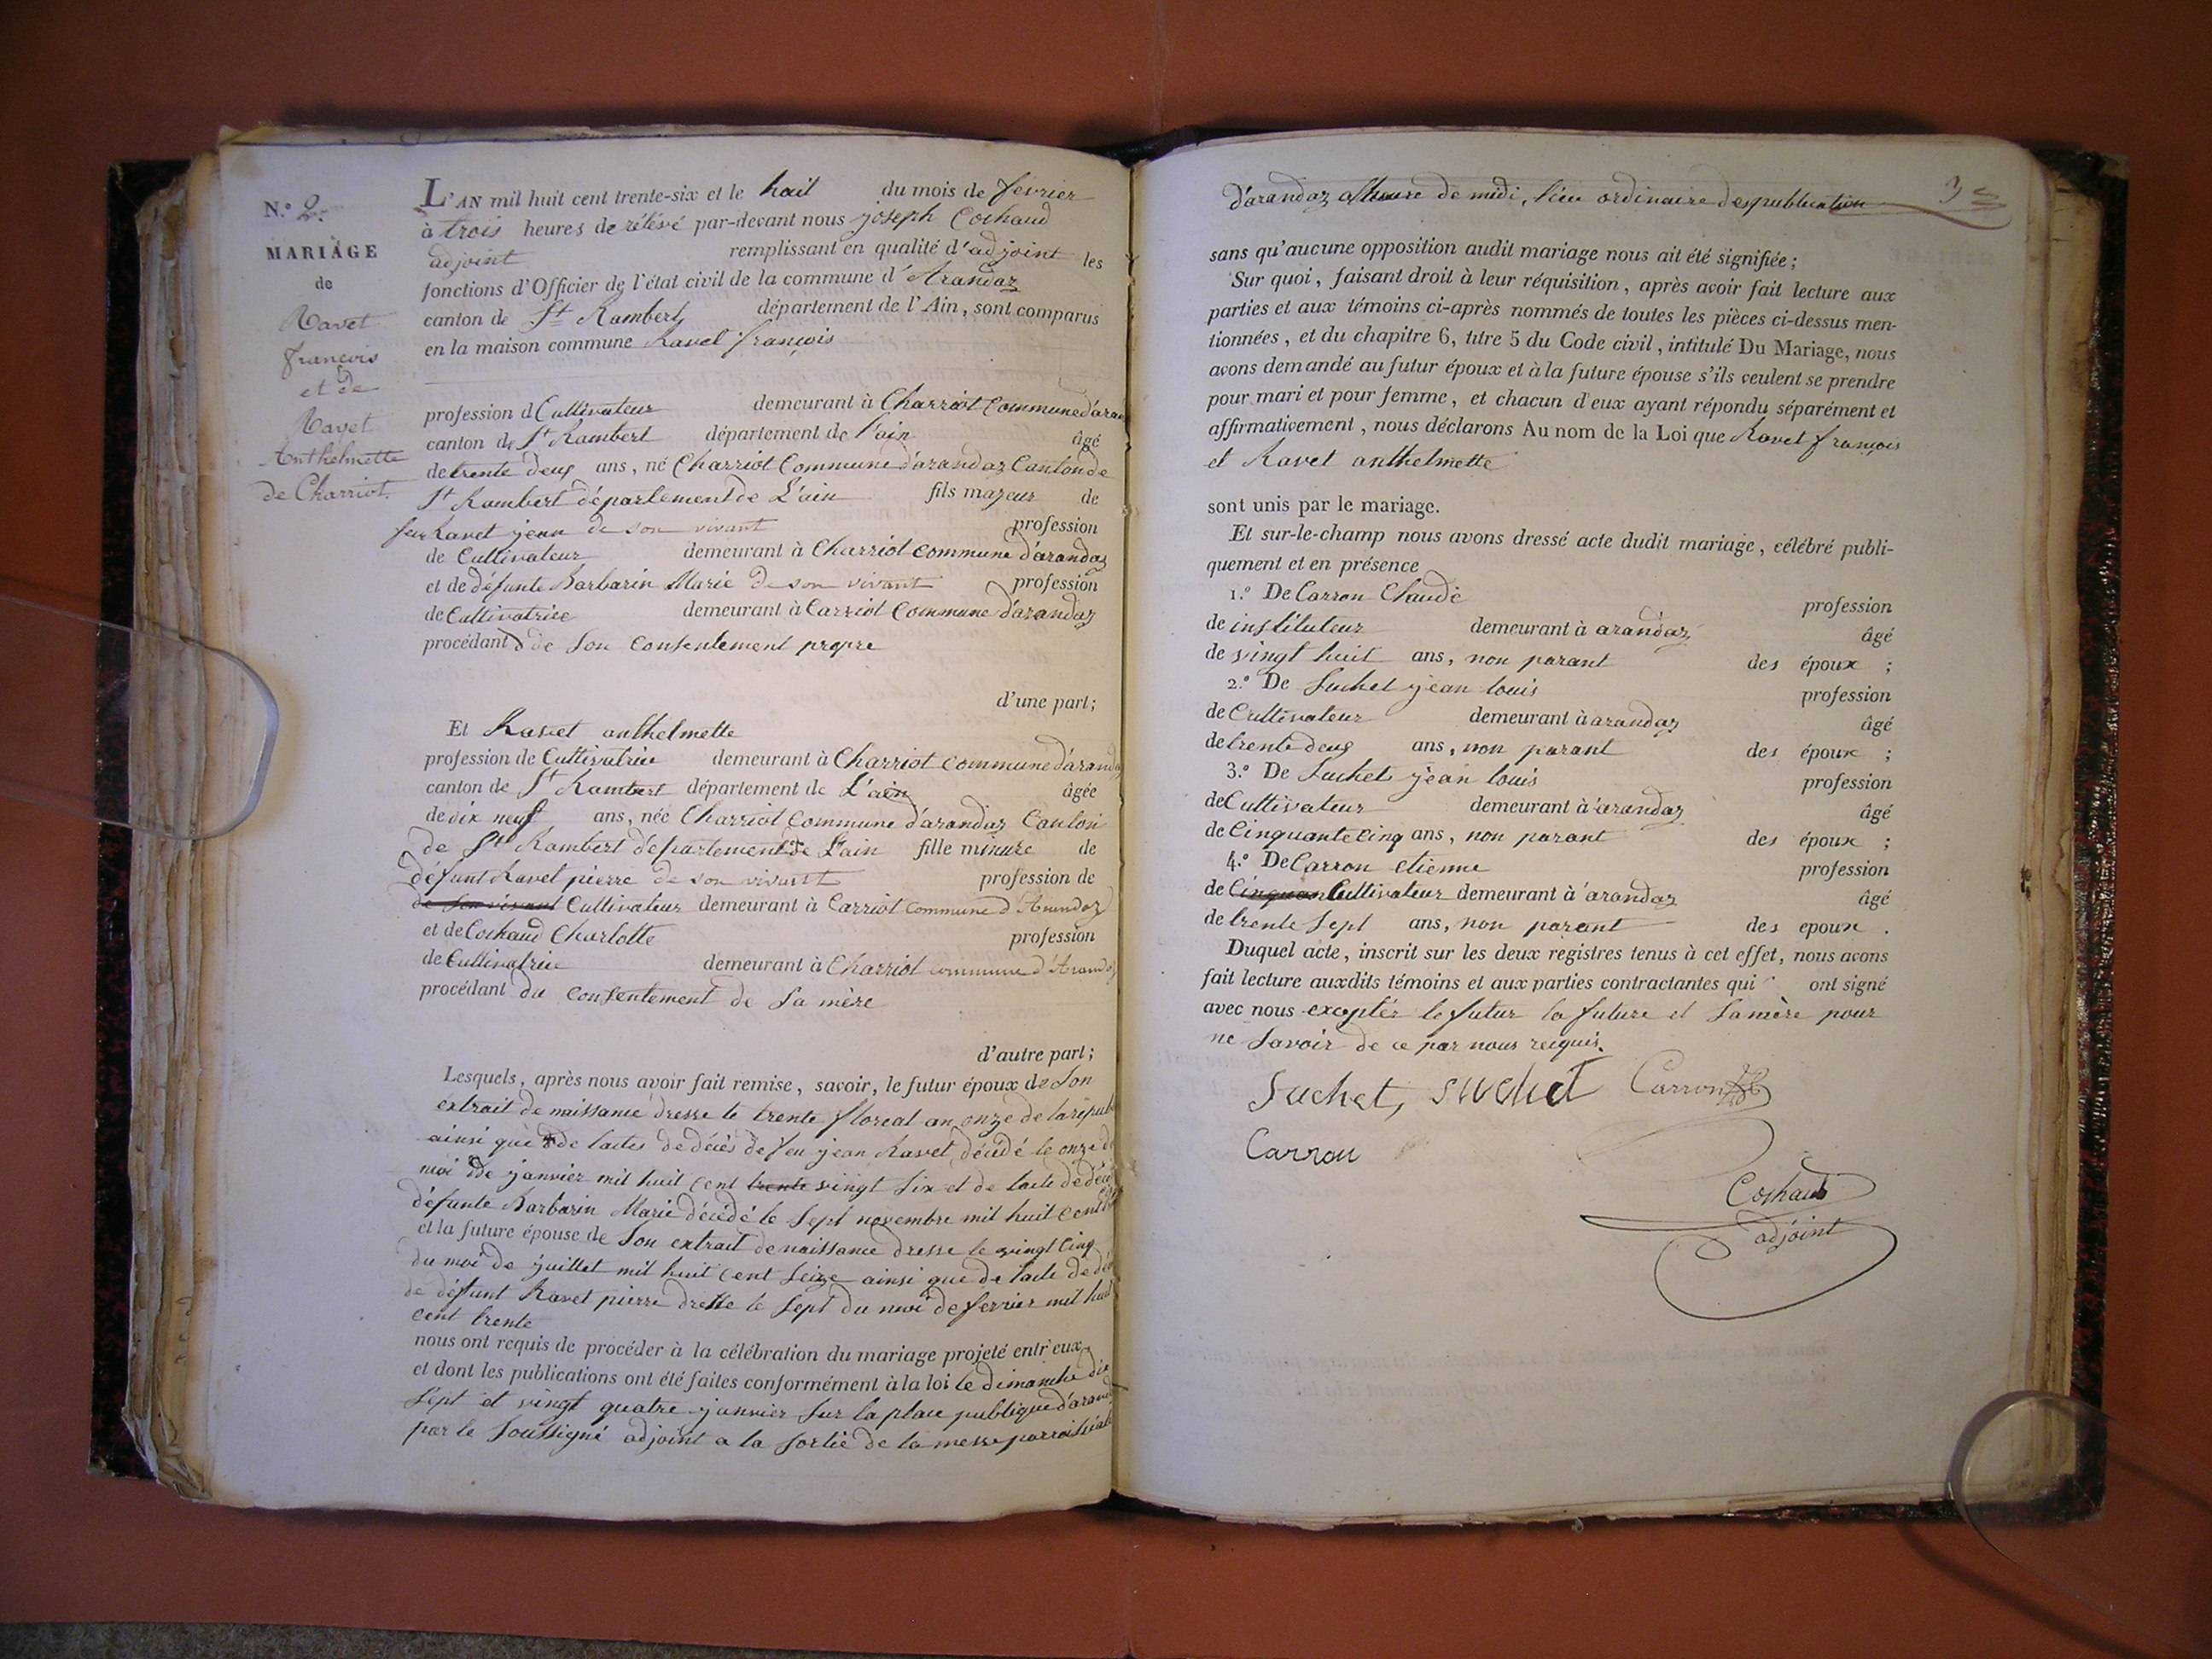 N.° 2.
MARIAGE
de
Ravet
françois
et de
Ravet
Anthelmette
de Charriot.
L'AN mil huit cent trente-six et le huit du mois de fevrier
à trois heures de rélévé par-devant nous joseph Cochaud
adjoint remplissant en qualité d'adjoint les
fonctions d'Officier de l'état civil de la commune d'Arandaz
canton de St Rambert département de l'Ain, sont comparus
en la maison commune Ravet françois
profession d Cultivateur demeurant à Charriot Commune d'aran
canton de St Rambert département de l'ain âgé
de trente deux ans, né Charriot Commune d'arandaz Canton de
St Rambert département de L'ain fils majeur de
feu Ravet jean de son vivant profession
de Cultivateur demeurant à Charriot commune d'arandaz
et de défunte Barbarin Marie de son vivant profession
de Cultivatrice demeurant à Carriot Commune d'arandaz
procédant de Son Consentement propre
d'une part;
Et Ravet anthelmette
profession de Cultivatrice demeurant à Charriot commune d'arandaz
canton de St Rambert département de L'ain âgée
de dix neuf ans, née Charriot Commune d'arandaz Canton
de St Rambert département de L'ain fille minure de
défunt Ravet pierre de son vivant profession de
de son vivant Cultivateur demeurant à Carriot commune d'Arandaz
et de Cochaud Charlotte profession
de Cultivatrice demeurant à Charriot commune d'Arandaz
procédant du consentement de Sa mère
d'autre part;
Lesquels, après nous avoir fait remise, savoir, le futur époux de Son
extrait de naissance dresse le trente floreal an onze de la répub
ainsi que de lactes de décès de feu jean Ravet, décédé le onze d
moi de janvier mil huit cent trente vingt six et de lacte de décè
défunte Barbarin Marie décédé le Sept novembre mil huit cent
et la future épouse de Son extrait de naissance dresse le vingt Cinq
du moi de juillet mil huit cent Seize ainsi que de lacte de dé
de défunt Ravet pierre dresse le Sept du moi de fevrier mil huit
cent trente
nous ont requis de procéder à la célébration du mariage projeté entr'eux,
et dont les publications ont été faites conformément à la loi le dimanche dix
Sept et vingt quatre janvier Sur la place publique d'arand
par le Soussigné adjoint a la Sortie de la messe parroissiale
3
d'arandaz alheure de midi, lieu ordinaire des publication
sans qu'aucune opposition audit mariage nous ait été signifiée;
Sur quoi, faisant droit à leur réquisition, après avoir fait lecture aux
parties et aux témoins ci-après nommés de toutes les pièces ci-dessus men-
tionnées, et du chapitre 6, titre 5 du Code civil, intitulé Du Mariage, nous
avons demandé au futur époux et à la future épouse s'ils veulent se prendre
pour mari et pour femme, et chacun d'eux ayant répondu séparément et
affirmativement, nous déclarons Au nom de la Loi que Ravet françois
et Ravet anthelmette
sont unis par le mariage.
Et sur-le-champ nous avons dressé acte dudit mariage, célébré publi-
quement et en présence
1.° De Carron Claude profession
de instituteur demeurant à arandaz âgé
de vingt huit ans, non parant des époux ;
2.° De Suchet jean louis profession
de Cultivateur demeurant à arandaz âgé
de trente deux ans, non parant des époux ;
3.° De Suchet jean louis profession
de Cultivateur demeurant à arandaz âgé
de Cinquante cinq ans, non parant des époux ;
4.° De Carron etienne profession
de Cinquan Cultivateur demeurant à arandaz âgé
de trente Sept ans, non parent des epoux .
Duquel acte, inscrit sur les deux registres tenus à cet effet, nous avons
fait lecture auxdits témoins et aux parties contractantes qui ont signé
avec nous exceptés le futur la future et Sa mère pour
ne Savoir de ce par nous reiquis.
Suchet, suchet Carron
Carron
Cochaud
adjoint